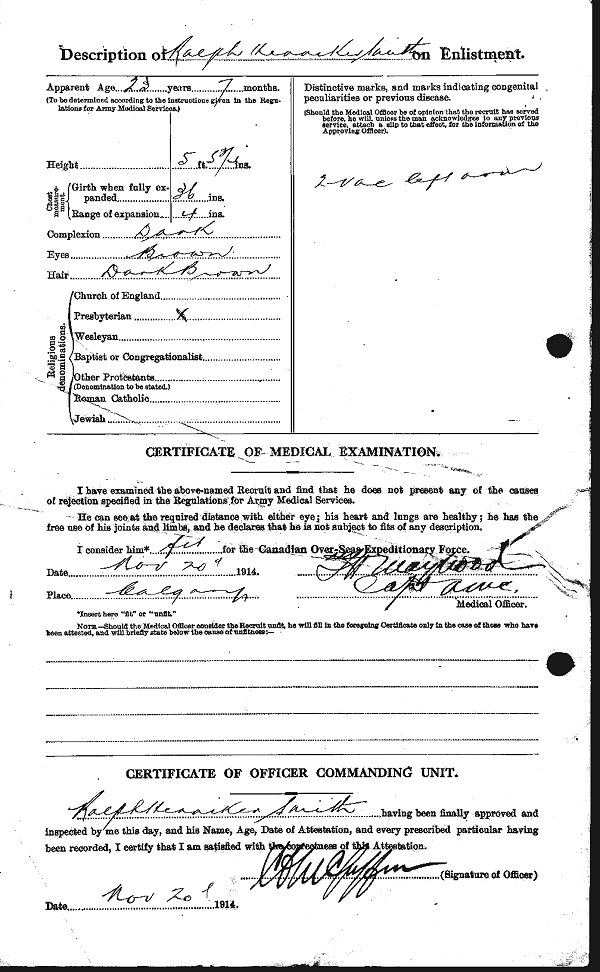 Description of Ralph Henniker Smith on Enlistment.
Apparent Age 23 years 7 months.
(To be determined according to the instructions given in the Regu-
lations for Army Medical Services.)
Height 5 ft. ins.
Chest measure-ment
Girth when fully ex-
panded 36 ins.
Range of expansion 4 ins.
Complexion Dark
Eyes Brown
Hair Dark Brown
Religious denominations.
Church of England
Presbyterian X
Wesleyan
Baptist or Congregationalist
Other Protestants
(Denomination to be stated.)
Roman Catholic
Jewish
Distinctive marks, and marks indicating congenital
peculiarities or previous disease.
(Should the Medical Officer be of opinion that the recruit has served
before, he will, unless the man acknowledges to any previous
service, attach a slip to that effect, for the information of the
Approving Officer).
2 vac left arm
CERTIFICATE OF MEDICAL EXAMINATION.
I have examined the above-named Recruit and find that he does not present any of the causes
of rejection specified in the Regulations for Army Medical Services.
He can see at the required distance with either eye; his heart and lungs are healthy; he has the
free use of his joints and limbs, and he declares that he is not subject to fits of any description.
I consider him* fit for the Canadian Over-Seas Expeditionary Force.
Date Nov 20 1914.
Place Calgary
Capt AMC.
Medical Officer.
*Insert here "fit" or "unfit."
NOTE—Should the Medical Officer consider the Recruit unfit, he will fill in the foregoing Certificate only in the case of those who have
been attested, and will briefly state below the cause of unfitness:—
CERTIFICATE OF OFFICER COMMANDING UNIT.
Ralph Henniker Smith having been finally approved and
inspected by me this day, and his Name, Age, Date of Attestation, and every prescribed particular having
been recorded, I certify that I am satisfied with the correctness of this Attestation.
(Signature of Officer)
Date Nov 20 1914.